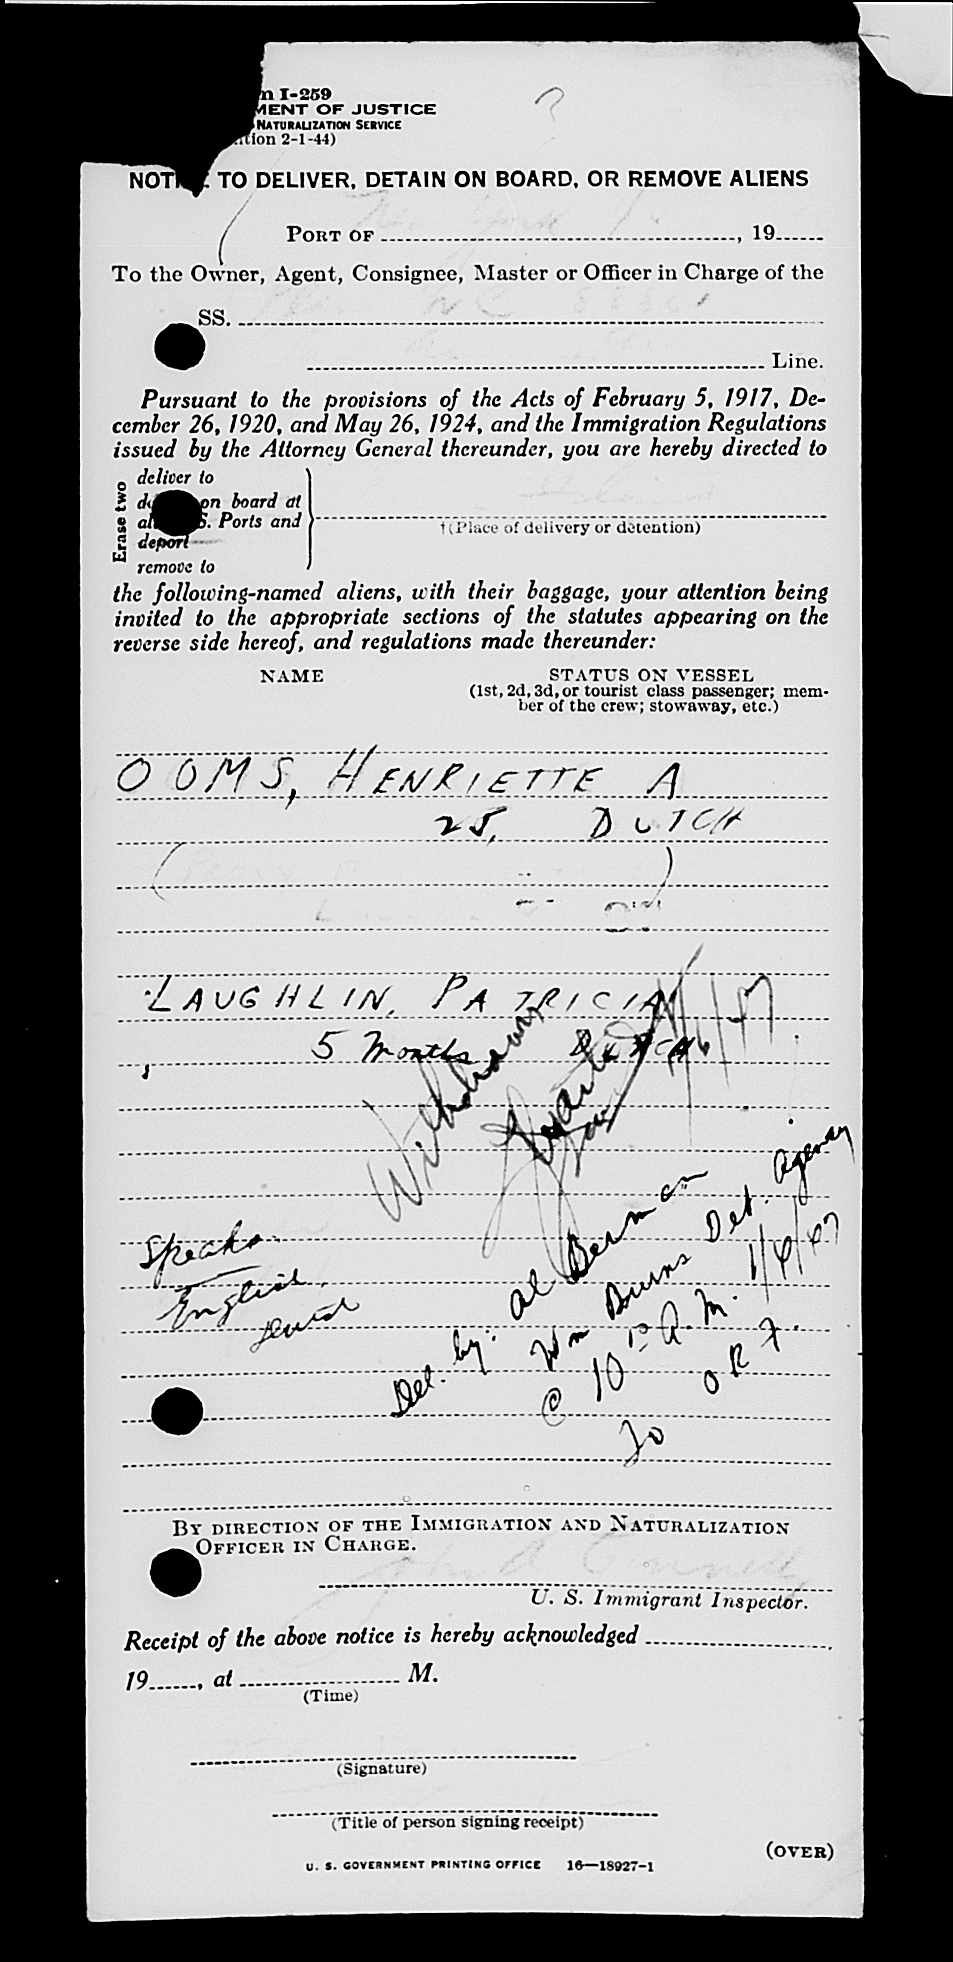 I-259
MENT OF JUSTICE
NATURALIZATION SERVICE
2-1-44)
TO DELIVER, DETAIN ON BOARD, OR REMOVE ALIENS
PORT OF , 19
To the Owner, Agent, Consignee, Master or Officer in Charge of the
SS.
Line.
Pursuant to the provisions of the Acts of February 5, 1917, De-
cember 26, 1920, and May 26, 1924, and the Immigration Regulations
issued by the Attorney General thereunder, you are hereby directed to
Erase two
deliver to
on board at
Ports and
deport
remove to
†(Place of delivery or detention)
the following-named aliens, with their baggage, your attention being
invited to the appropriate sections of the statutes appearing on the
reverse side hereof, and regulations made thereunder:
NAME STATUS ON VESSEL
(1st, 2d, 3d, or tourist class passenger; mem-
ber of the crew; stowaway, etc.)
OOMS, HENRIETTE A
25, DUTCH
LAUGHLIN, PATRICIA
5 Months DUTCH
Withdrawn
1/6/47
Speaks
English
Del. by: Al Berman
Wm Burns Det. Agency
@ 10 A.M. 1/6/47
To
By direction of the Immigration and Naturalization
Officer in Charge.
U. S. Immigrant Inspector.
Receipt of the above notice is hereby acknowledged ,
19 , at M.
(Time)
(Signature)
(Title of person signing receipt)
(OVER)
U. S. GOVERNMENT PRINTING OFFICE 16—18927-1